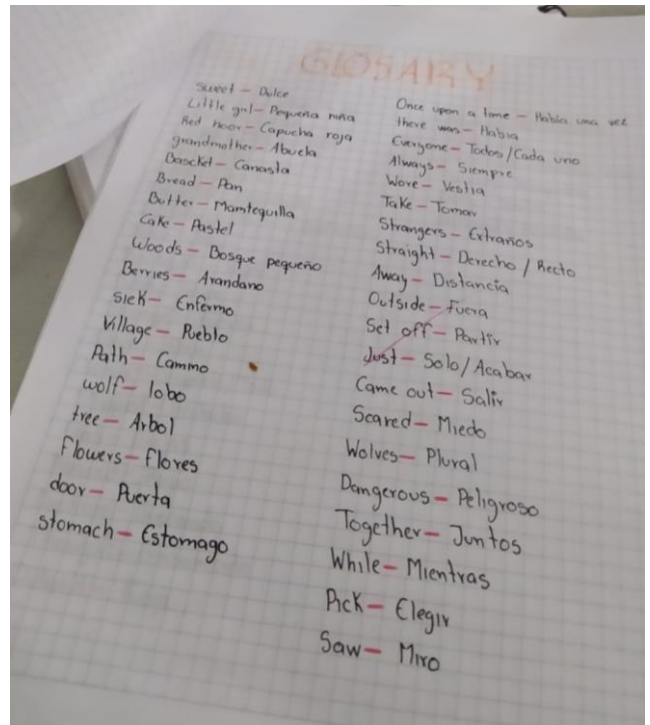 GLOSARY
Sweet – Dulce
Little girl – Pequeña niña
Red Hoor – Capucha roja
grandmother – Abuela
Bascket – Canasta
Bread – Pan
Butter – Mantequilla
Cake – Pastel
Woods – Bosque pequeño
Berries – Arandano
Sick – Enfermo
Village – Pueblo
Path – Camino
wolf – lobo
tree – Arbol
Flowers – flores
door – Puerta
Stomach – Estomago
Once upon a time – Habia una vez
there was – Habia
Everyone – Todos / Cada uno
Always – Siempre
Wore – Vestia
Take – Tomar
Strangers – Extraños
Straight – Derecho / Recto
Away – Distancia
Outside – Fuera
Set off – Partir
Just – Solo / Acabar
Came out – Salir
Scared – Miedo
Wolves – Plural
Dangerous – Peligroso
Together – Juntos
While – Mientras
Pick – Elegir
Saw – Miro